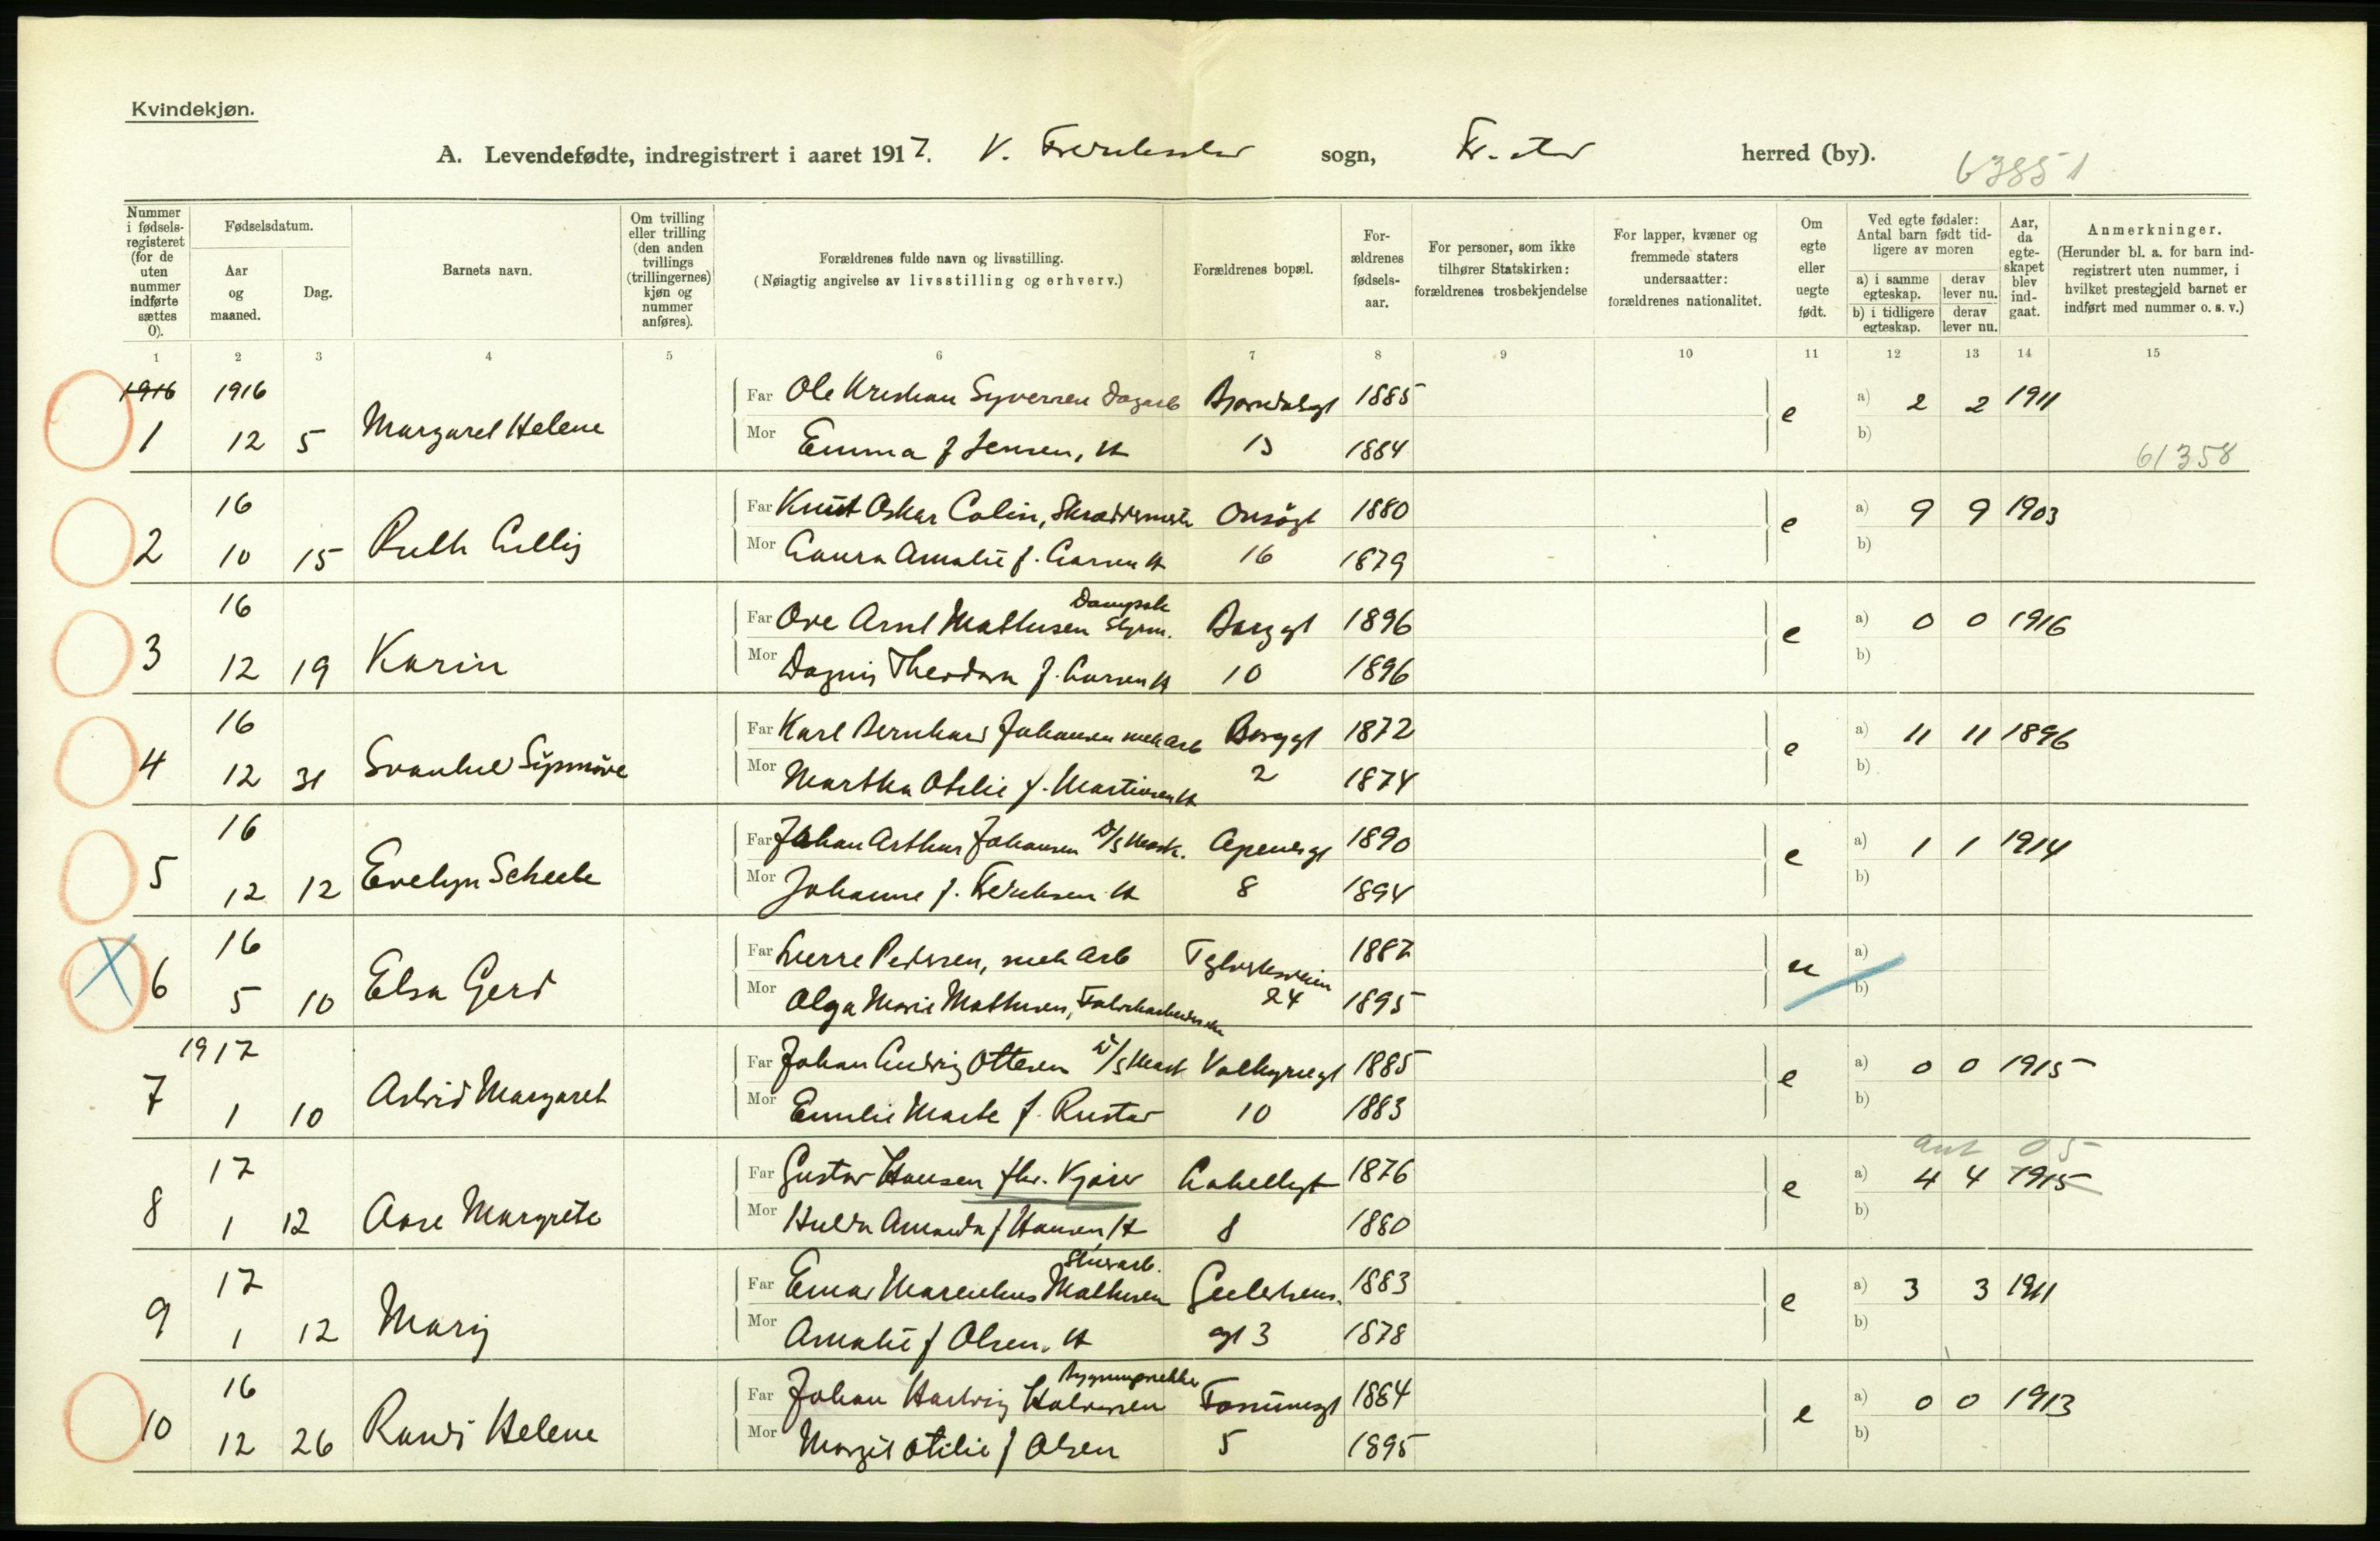 Kvindekjøn.
A. Levendefødte, indregistrert i aaret 1917. V. Fredrikstad sogn, Fr.stad herred (by).
63851
Nummer i fødselsregisteret (for de uten nummer indførte sættes 0).
Fødselsdatum.
Aar og maaned.
Dag.
Barnets navn.
Om tvilling eller trilling (den anden tvillings (trillingernes) kjøn og nummer anføres).
Forældrenes fulde navn og livsstilling.
(Nøiagtig angivelse av livsstilling og erhverv.)
Forældrenes bopæl.
Forældrenes fødselsaar.
For personer, som ikke tilhører Statskirken: forældrenes trosbekjendelse
For lapper, kvæner og fremmede staters undersaatter: forældrenes nationalitet.
Om egte eller uegte født.
Ved egte fødsler: Antal barn født tidligere av moren
a) i samme egteskap.
derav lever nu.
b) i tidligere egteskap.
derav lever nu.
Aar, da egteskapet blev indgaat.
Anmerkninger.
(Herunder bl. a. for barn indregistrert uten nummer, i hvilket prestegjeld barnet er indført med nummer o. s. v.)
1 2 3 4 5 6 7 8 9 10 11 12 13 14 15
1916 1916 Far Ole Kristian Syversen Dagarb 1885 a) 2 2 1911
1 12 5 Margaret Helene Mor Emma f Jensen, H 13 1884 e b)
61358
16 Far Knut Oskar Colin, Skræddermstr Onsögt 1880 a) 9 9 1903
2 10 15 Ruth Lilly Mor Laura Amalie f. Larsen H 16 1879 e b)
16 Far Ove Arnt Mathisen Dampsk Styrm. Borggt 1896 a) 0 0 1916
3 12 19 Karin Mor Dagny Theodora f. Larsen H 10 1896 e b)
16 Far Karl Bernhard Johansen mek arb Borggt 1872 a) 11 11 1896
4 12 31 Svanhild Mor Martha Otilie f. Martinsen H 2 1874 e b)
16 Far Johan Arthur Johansen D/s Mask. Apenesgt 1890 a) 1 1 1914
5 12 12 Evelyn Scheele Mor Johanne f. Fredriksen H 8 1894 e b)
16 Far Sverre Pedersen, mek Arb 1887 a)
6 5 10 Elsa Gerd Mor Olga Marie Mathisen, Fabrikarbeiderske 24 1895 u b)
1917 Far Johan Ludvig Ottesen D/s Mask Valkyriegt 1885 a) 0 0 1915
7 1 10 Astrid Margaret Mor Emilie Marte f. Rustad 10 1883 e b)
ant 05
17 Far Gustav Hansen fhv. Kjører Cahellsgt 1876 a) 4 4 1915
8 1 12 Aase Margrete Mor Hulda Amanda f Hansen H 8 1880 e b)
17 Far Einar Marenius Mathisen Stuerarb. 1883 a) 3 3 1911
9 1 12 Mary Mor Amalie f Olsen. H gt 3 1878 e b)
16 Far Johan Hartvig Halvorsen 1884 a) 0 0 1913
10 12 26 Randi Helene Mor Margit Otilie f Olsen 5 1895 e b)